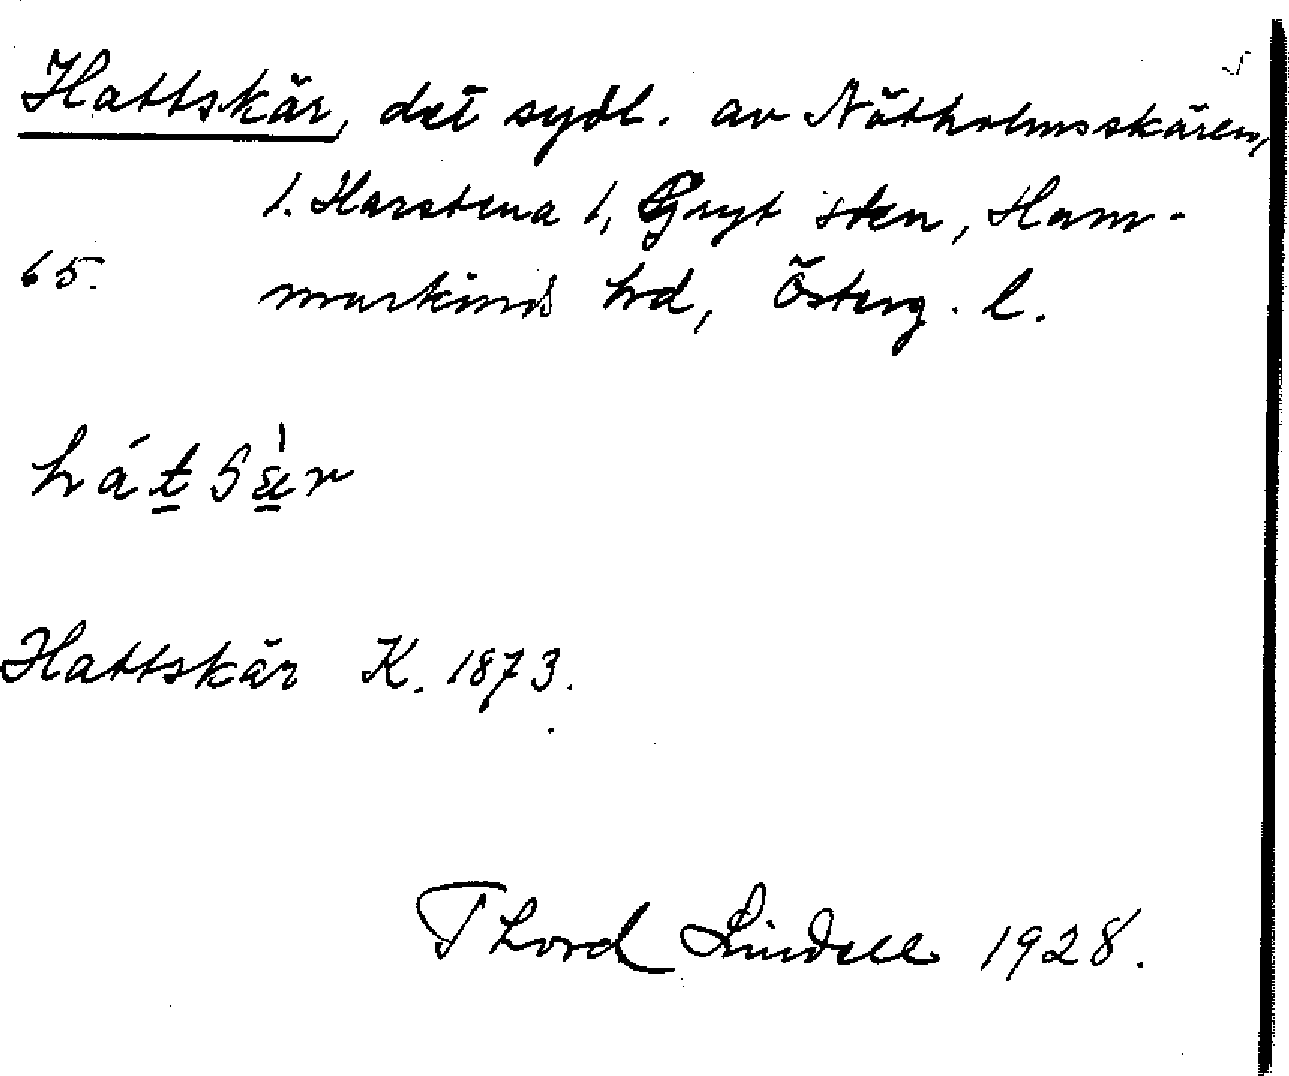 Hattskär, det sydl. av Nötholmsskären,
1. Harstena 1, Gryt skn, Ham-
65.
markinds hd, Österg. l.
Hattskär K. 1873.
Thord Lindell 1928.